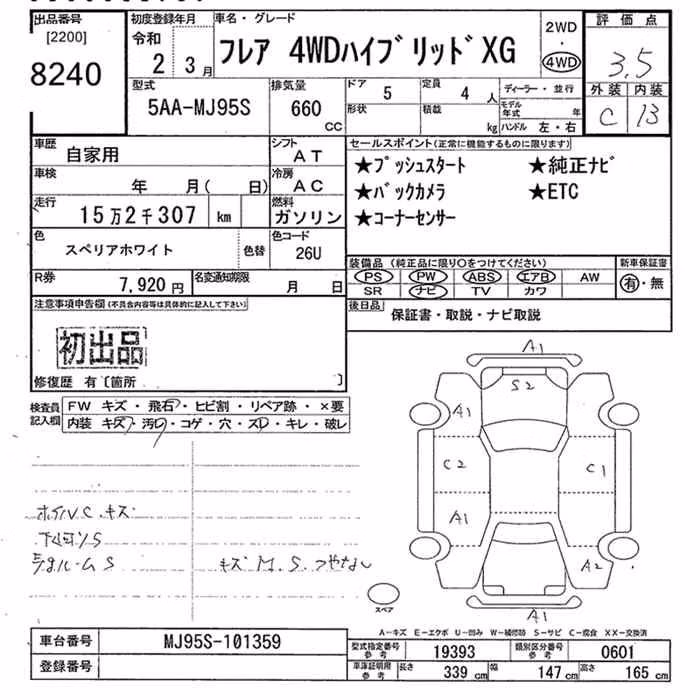 出品番号
[2200]
8240
初度登録年月
令和
2 3月
車名・グレード
フレア 4WDハイブリッドXG
2WD
・
4WD
評価点
3.5
外装 内装
C B
型式
5AA-MJ95S
排気量
660
CC
ドア
5
形状
定員
4 人
積載
kg
ディーラー・並行
モデル年式 年
ハンドル 左・右
車歴
自家用
シフト
AT
車検
年 月( 日)
冷房
AC
走行
15万2千307 km
燃料
ガソリン
色
スペリアホワイト
色替
色コード
26U
R券
7,920円
名変通知期限
月 日
セールスポイント(正常に機能するものに限ります)
★プッシュスタート ★純正ナビ
★バックカメラ ★ETC
★コーナーセンサー
装備品(純正品に限り○をつけてください)
新車保証書
PS PW ABS エアB AW
SR ナビ TV カワ
有・無
後日品
保証書・取説・ナビ取説
注意事項申告欄(不具合内容等は具体的に記入して下さい)
初出品
修復歴 有〔箇所 〕
検査員記入欄
FW キズ・飛石・ヒビ割・リペア跡・×要
内装 キズ・汚れ・コゲ・穴・スレ・キレ・破レ
ホイルVC.キズ
S
ルームS
キズ M.S.つやなし
A1
S2
A1
C2
C1
A1
A2
A1
スペア
A-キズ E-エクボ U-凹み W-補修跡 S-サビ C-腐食 XX-交換済
車台番号
MJ95S-101359
登録番号
型式指定番号
参考
19393
類別区分番号
参考
0601
車庫証明用
参考
長さ
339 cm
幅
147 cm
高さ
165 cm